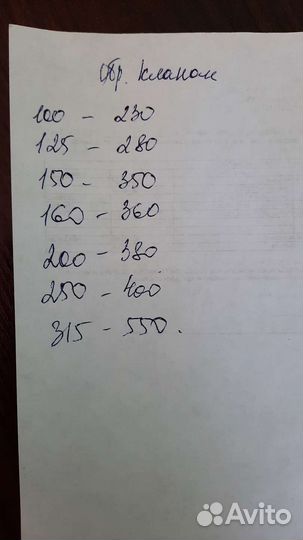 Обр. клапан
100 - 230
125 - 280
150 - 350
160 - 360
200 - 380
250 - 400
315 - 550.
Avito